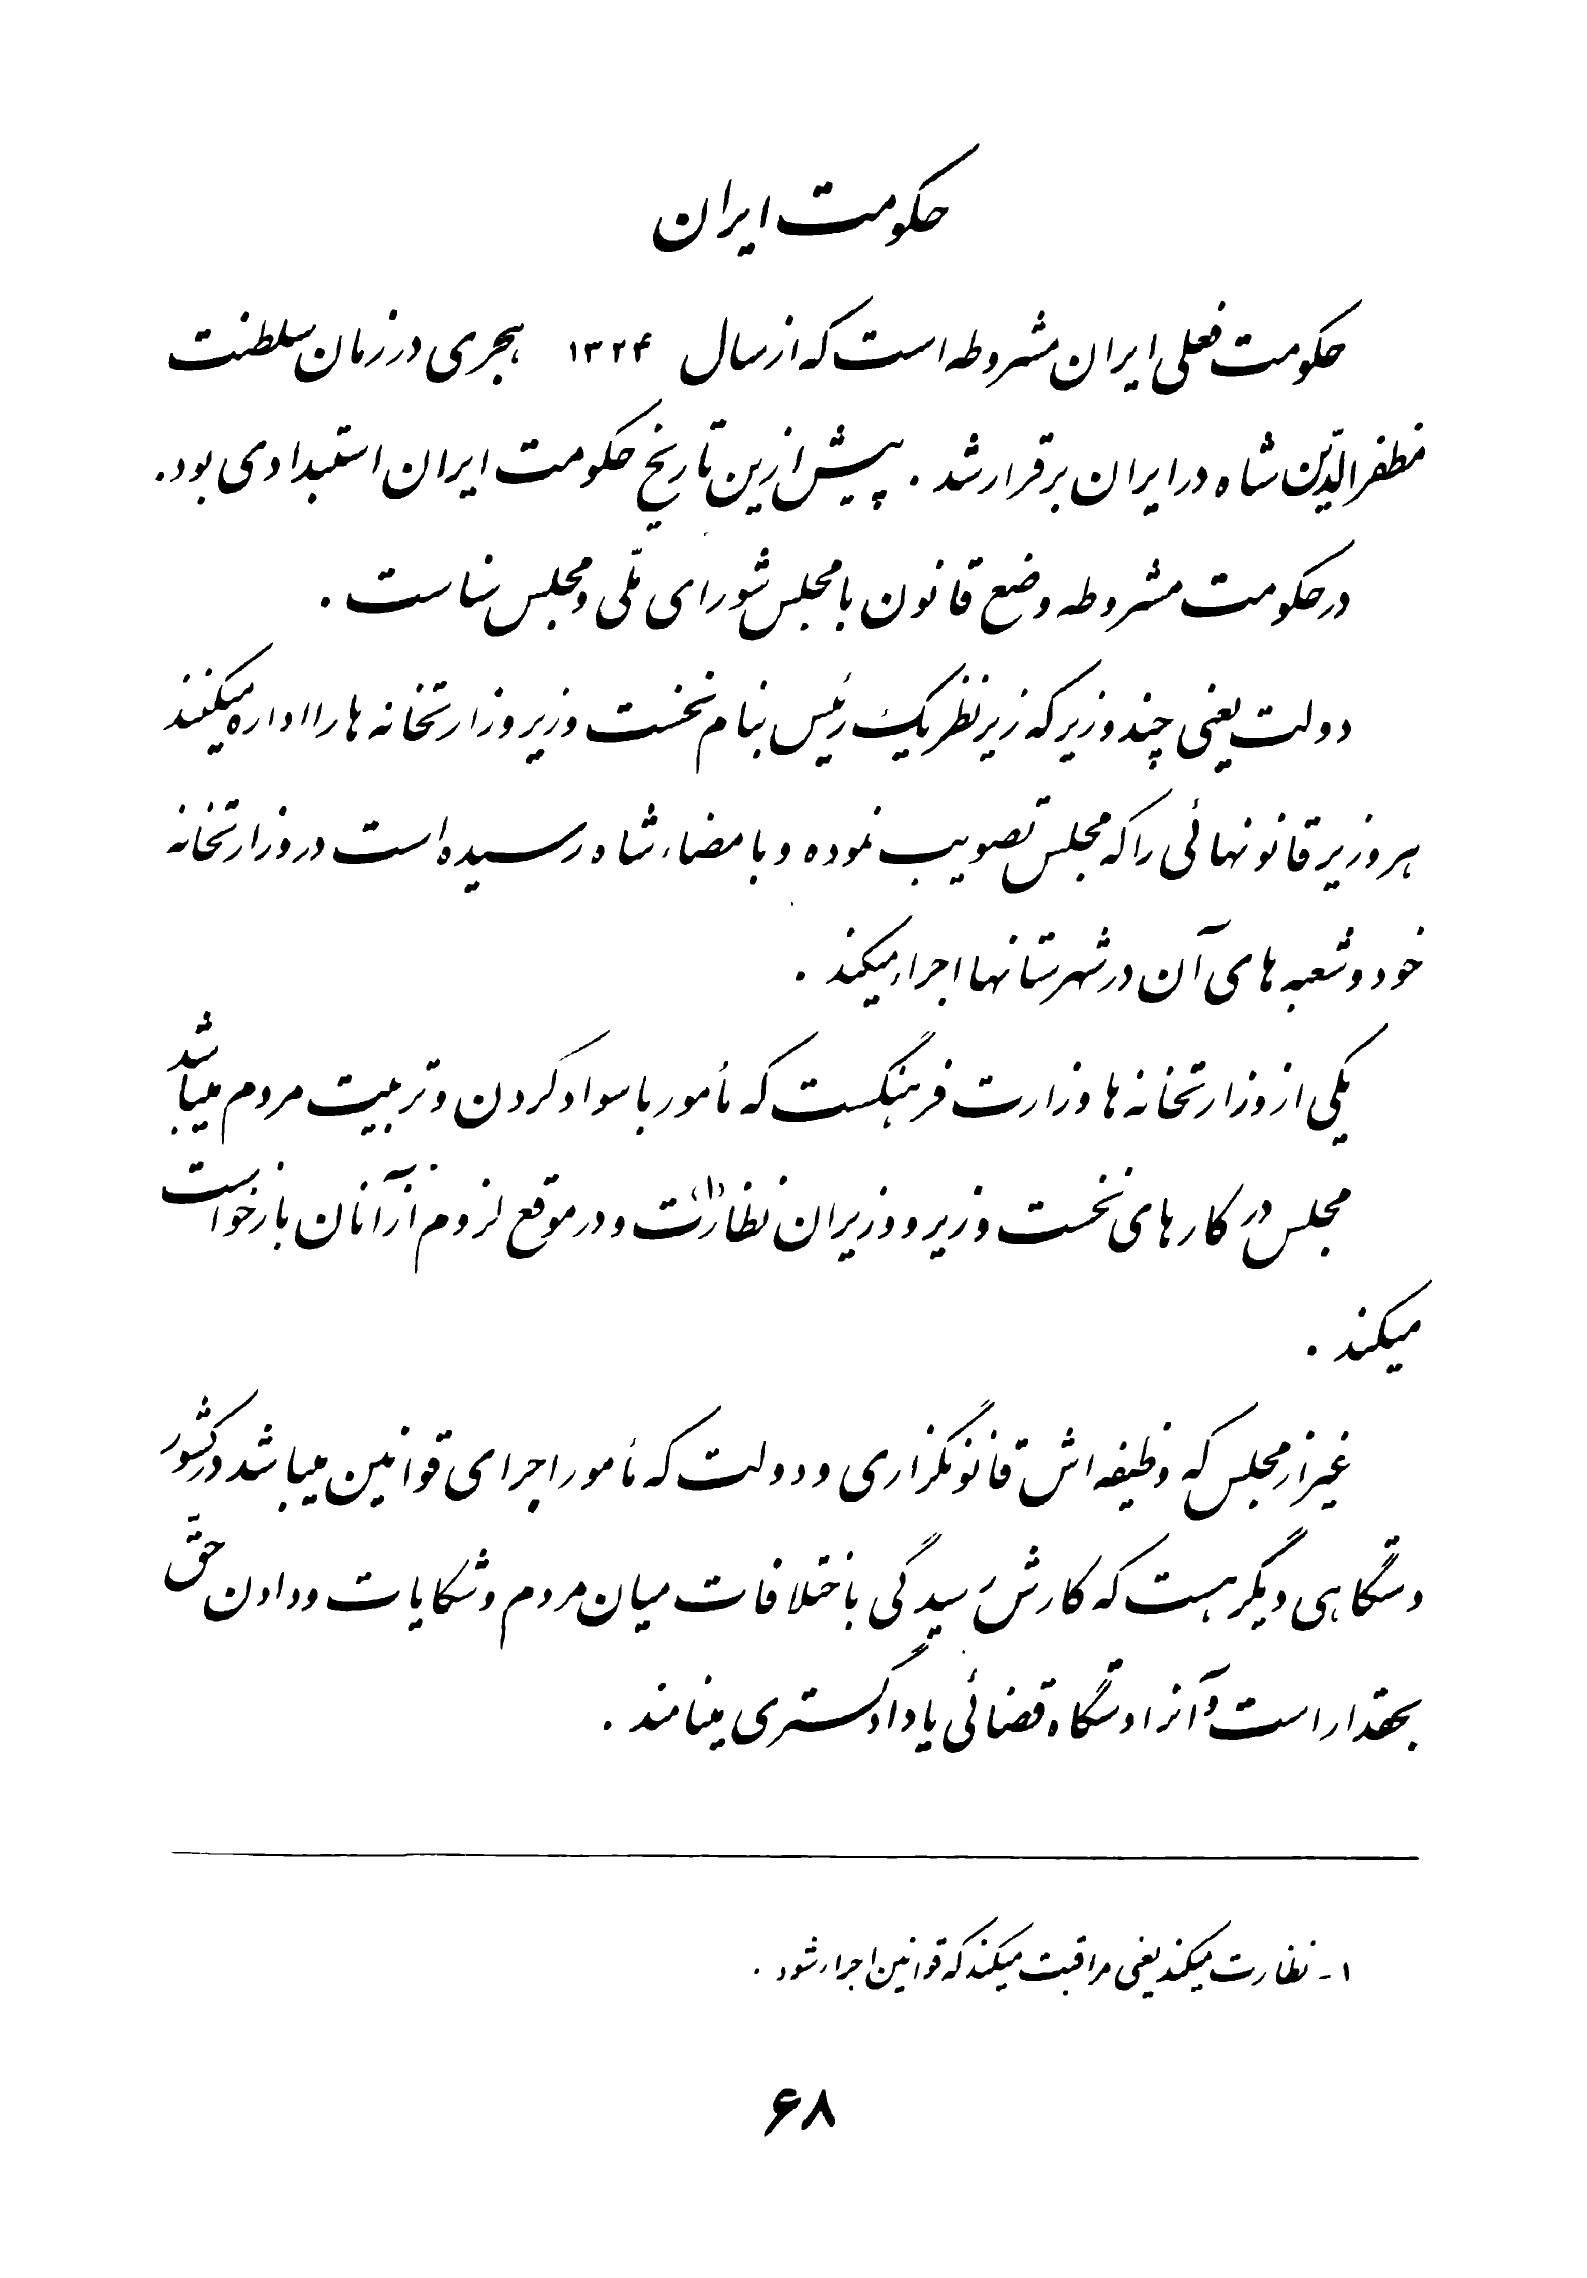 حکومت ایران
حکومت فعلی ایران مشروطه است که از سال ۱۳۲۴ هجری در زمان سلطنت
مظفرالدّین شاه در ایران برقرار شد . پیش ازین تاریخ حکومت ایران استبدادی بود.
در حکومت مشروطه وضع قانون با مجلس شورای ملّی و مجلس سنا است .
دولت یعنی چند وزیر که زیر نظر یک رئیس بنام نخست وزیر وزارتخانه ها را اداره میکنند
هر وزیر قانونهائی را که مجلس تصویب نموده و بامضاء شاه رسیده است در وزارتخانه
خود و شعبه های آن در شهرستانها اجراء میکند .
یکی از وزارتخانه ها وزارت فرهنگست که مأمور باسواد کردن و تربیت مردم میباشد
مجلس در کارهای نخست وزیر و وزیران نظارت (۱) و در موقع لزوم از آنان بازخواست
میکند .
غیر از مجلس که وظیفه اش قانونگزاری و دولت که مأمور اجرای قوانین میباشد در کشور
دستگاهی دیگر هست که کارش رسیدگی باختلافات میان مردم و شکایات و دادن حقّ
بحقدار است و آنرا دستگاه قضائی یا دادگستری مینامند .
۱- نظارت میکند یعنی مراقبت میکند که قوانین اجراء شود .
۶۸